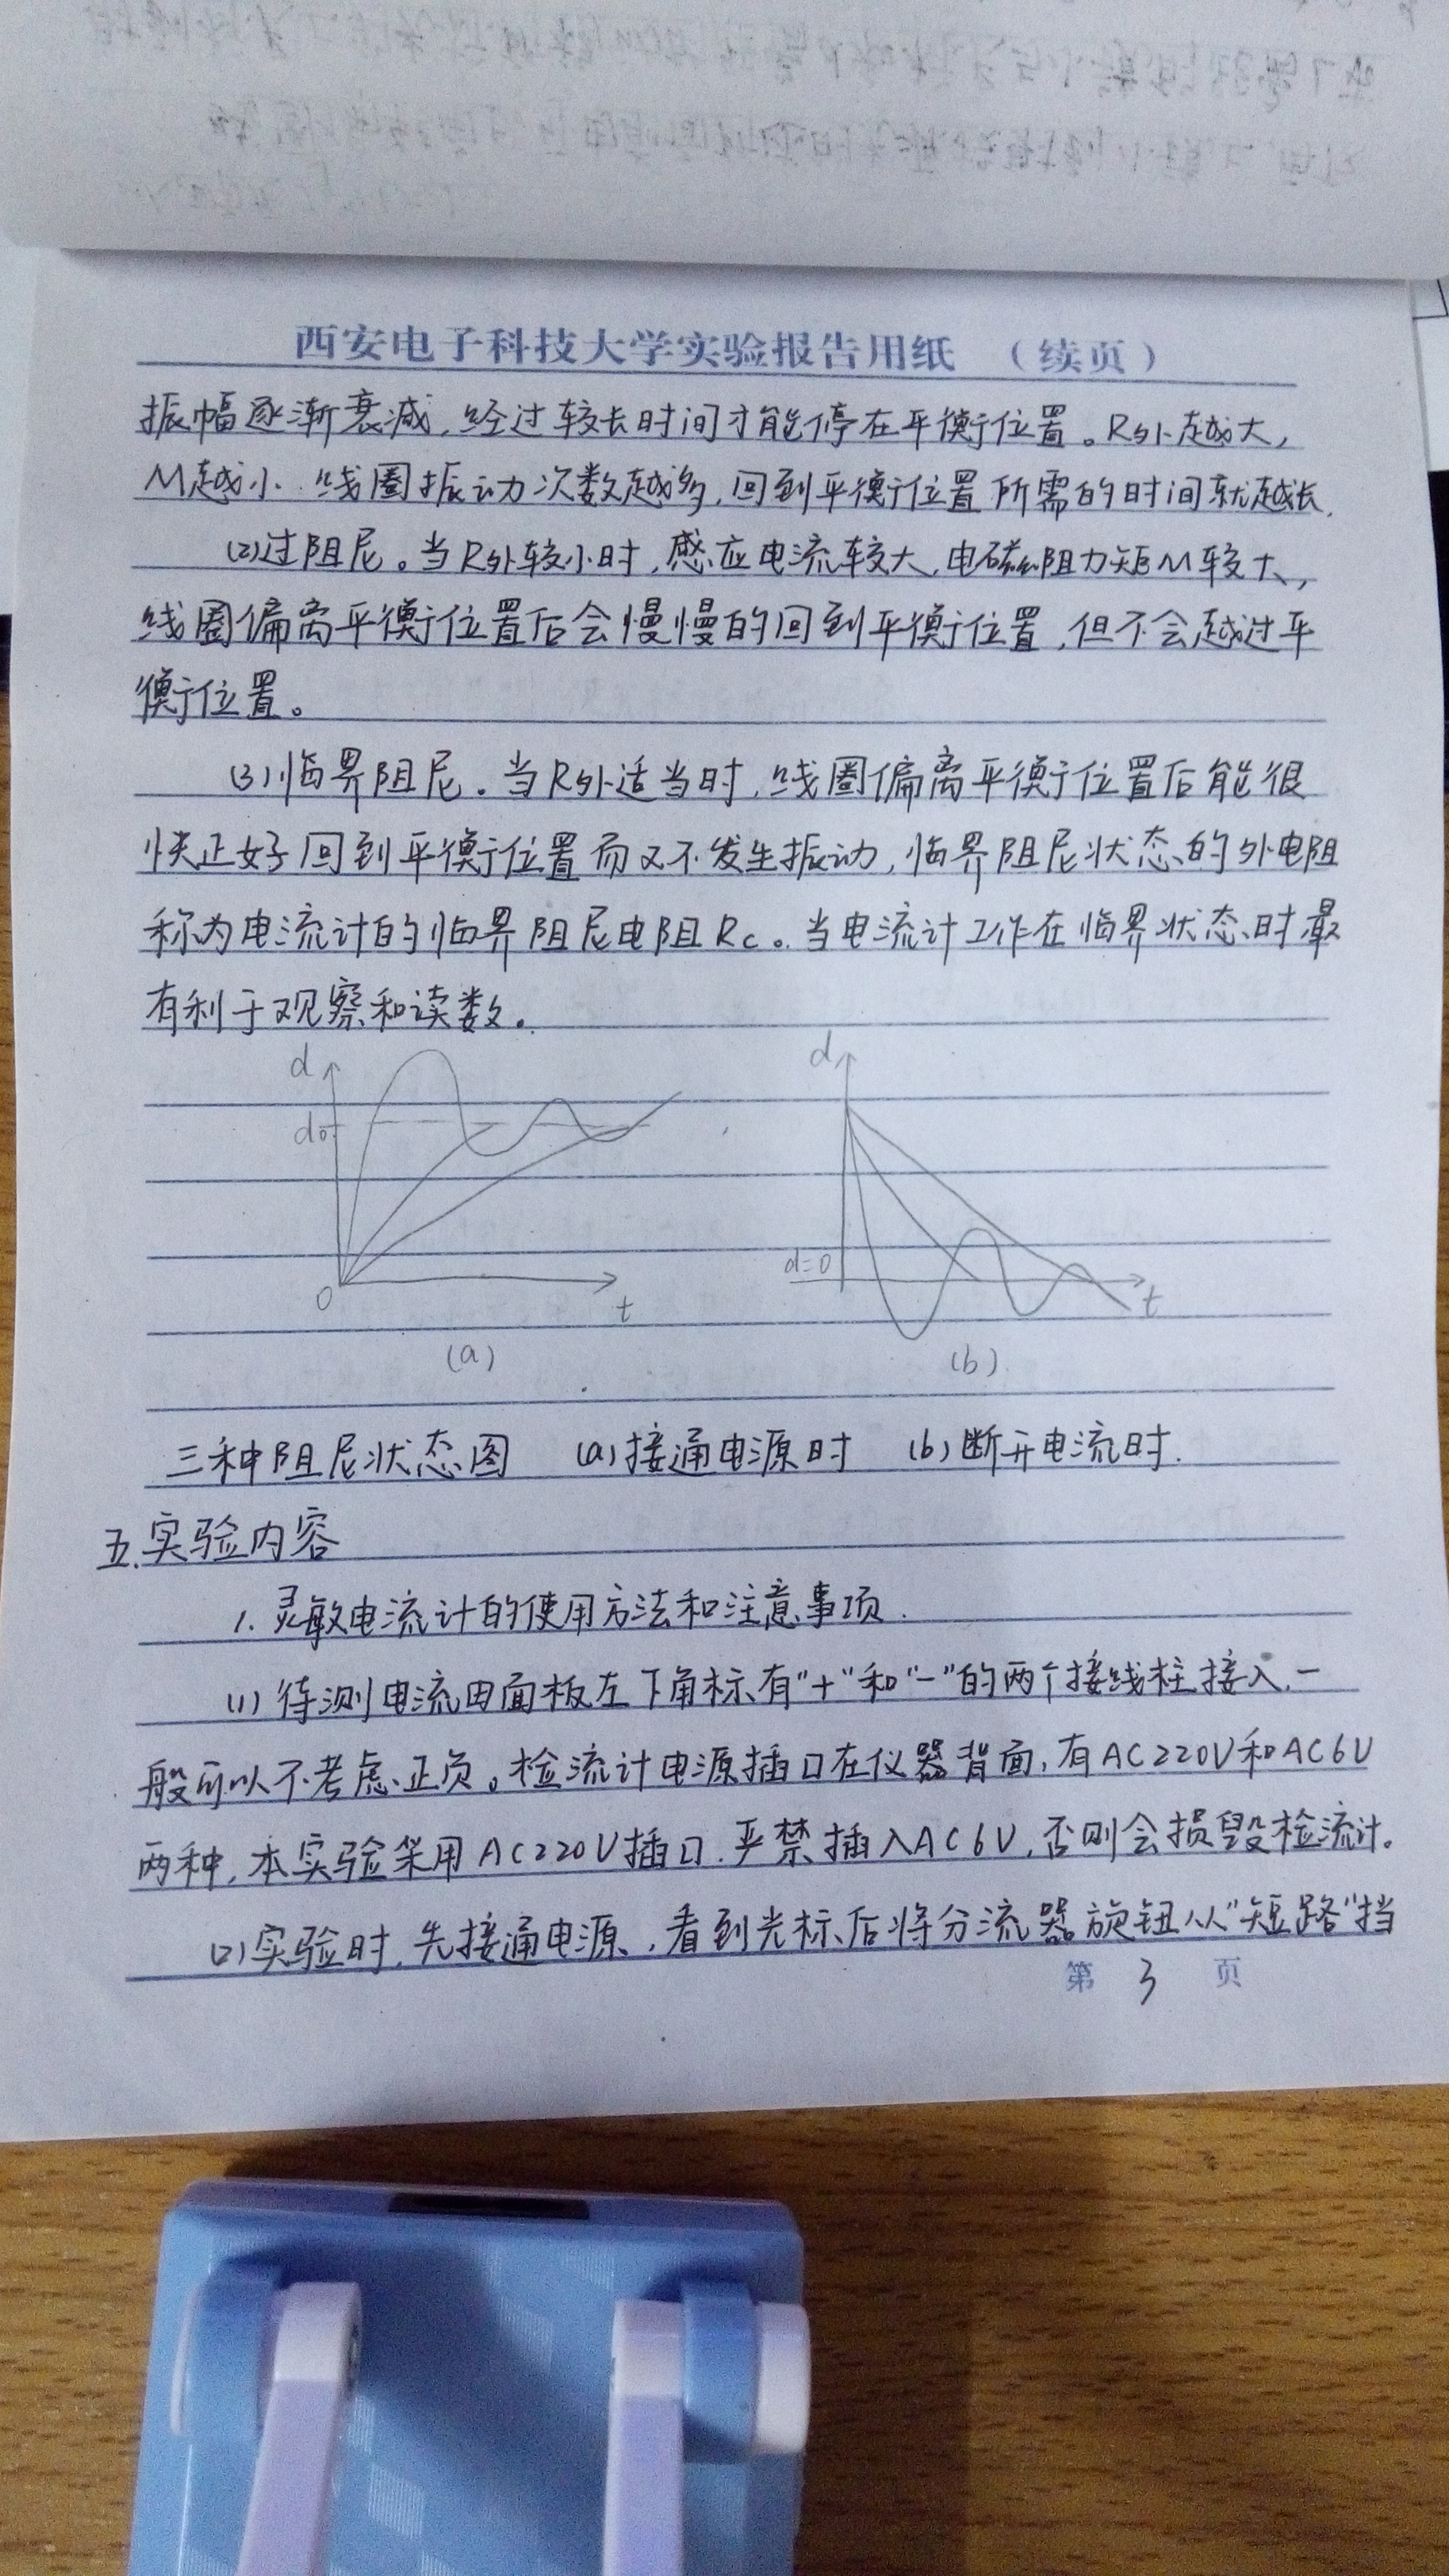 西安电子科技大学实验报告用纸 （续页）
振幅逐渐衰减,经过较长时间才能停在平衡位置。R外越大,
M越小.线圈振动次数越多,回到平衡位置所需的时间就越长.
(2)过阻尼。当R外较小时,感应电流较大,电磁阻力矩M较大,
线圈偏离平衡位置后会慢慢的回到平衡位置,但不会越过平
衡位置。
(3)临界阻尼。当R外适当时,线圈偏离平衡位置后能很
快正好回到平衡位置而又不发生振动,临界阻尼状态的外电阻
称为电流计的临界阻尼电阻Rc。当电流计工作在临界状态时最
有利于观察和读数。
d d
d₀
d=0
0 t t
(a) (b)
三种阻尼状态图 (a)接通电源时 (b)断开电流时.
五.实验内容
1.灵敏电流计的使用方法和注意事项.
(1)待测电流由面板左下角标有"+"和"-"的两个接线柱接入,一
般可以不考虑正负。检流计电源插口在仪器背面,有AC220V和AC6V
两种,本实验采用AC220V插口.严禁插入AC6V,否则会损毁检流计。
(2)实验时,先接通电源,看到光标后将分流器旋钮从"短路"挡
第 3 页